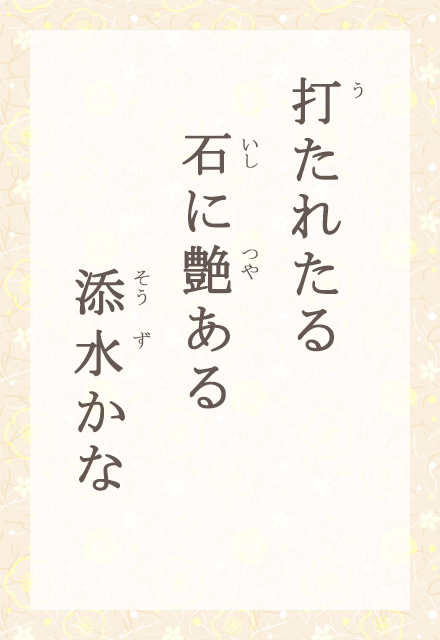 打たれたる
石に艶ある
添水かな
う
いし
つや
そうず